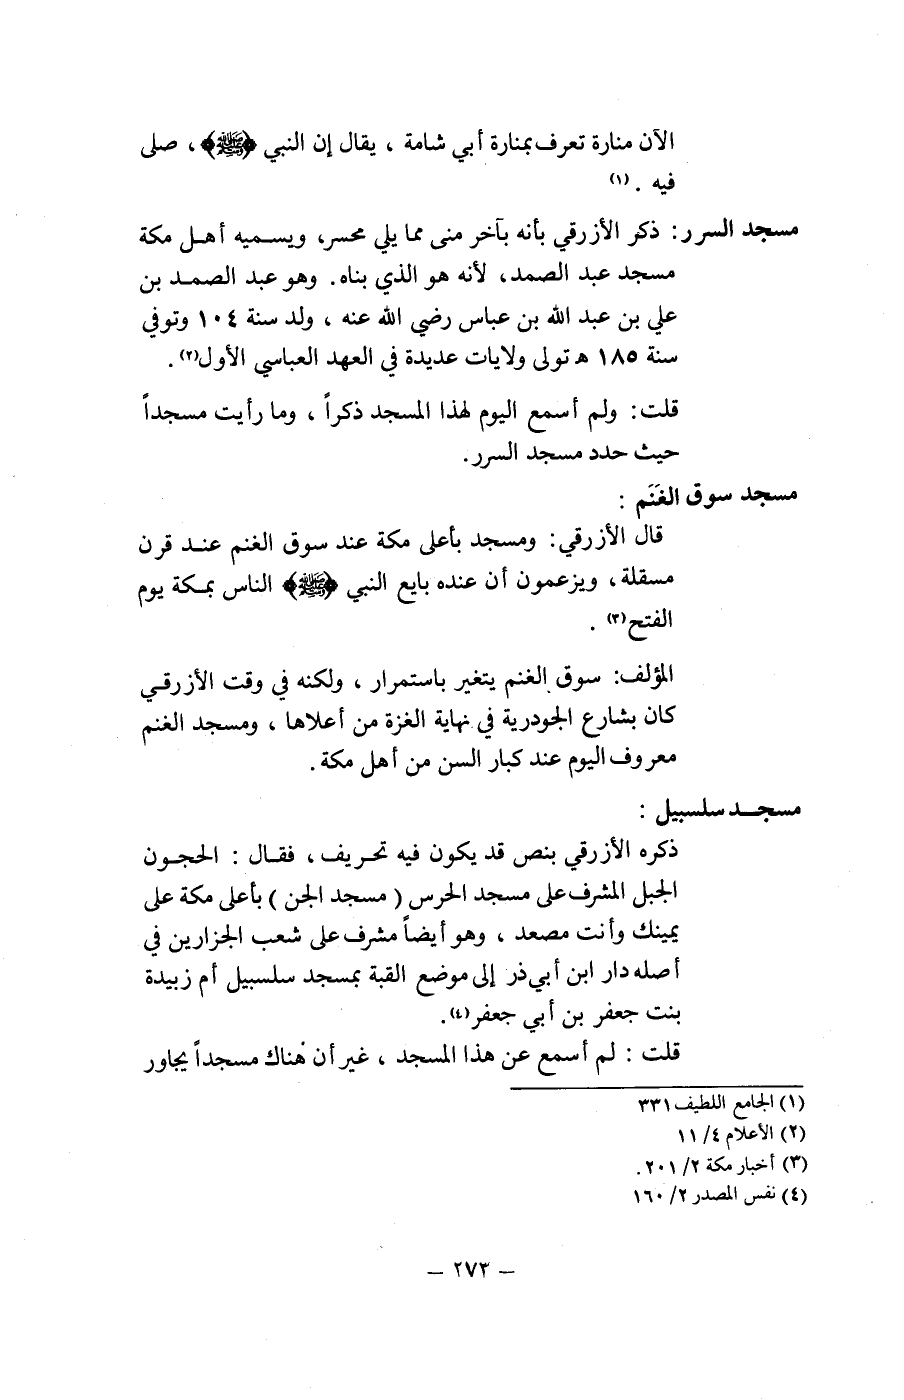 الآن منارة تعرف بمنارة أبي شامة ، يقال إن النبي ﴿ﷺ﴾ ، صلى
فيه . (١)
مسجد السرر: ذكر الأزرقي بأنه بآخر منى مما يلي محسر، ويسميه أهل مكة
مسجد عبد الصمد، لأنه هو الذي بناه. وهو عبد الصمد بن
علي بن عبد الله بن عباس رضي الله عنه ، ولد سنة ١٠٤ وتوفي
سنة ١٨٥ هـ تولى ولايات عديدة في العهد العباسي الأول(٢).
قلت: ولم أسمع اليوم لهذا المسجد ذكراً ، وما رأيت مسجداً
حيث حدد مسجد السرر.
مسجد سوق الغَنَم :
قال الأزرقي: ومسجد بأعلى مكة عند سوق الغنم عند قرن
مسقلة، ويزعمون أن عنده بايع النبي ﴿ﷺ﴾ الناس بمكة يوم
الفتح(٣) .
المؤلف: سوق الغنم يتغير باستمرار ، ولكنه في وقت الأزرقي
كان بشارع الجودرية في نهاية الغزة من أعلاها ، ومسجد الغنم
معروف اليوم عند كبار السن من أهل مكة.
مسجد سلسبيل :
ذكره الأزرقي بنص قد يكون فيه تحريف ، فقال : الحجون
الجبل المشرف على مسجد الحرس ( مسجد الجن ) بأعلى مكة على
يمينك وأنت مصعد ، وهو أيضاً مشرف على شعب الجزارين في
أصله دار ابن أبي ذر إلى موضع القبة بمسجد سلسبيل أم زبيدة
بنت جعفر بن أبي جعفر(٤).
قلت : لم أسمع عن هذا المسجد ، غير أن هُناك مسجداً يجاور
(١) الجامع اللطيف ٣٣١
(٢) الأعلام ٤/ ١١
(٣) أخبار مكة ٢/ ٢٠١.
(٤) نفس المصدر ٢/ ١٦٠
– ٢٧٣ –